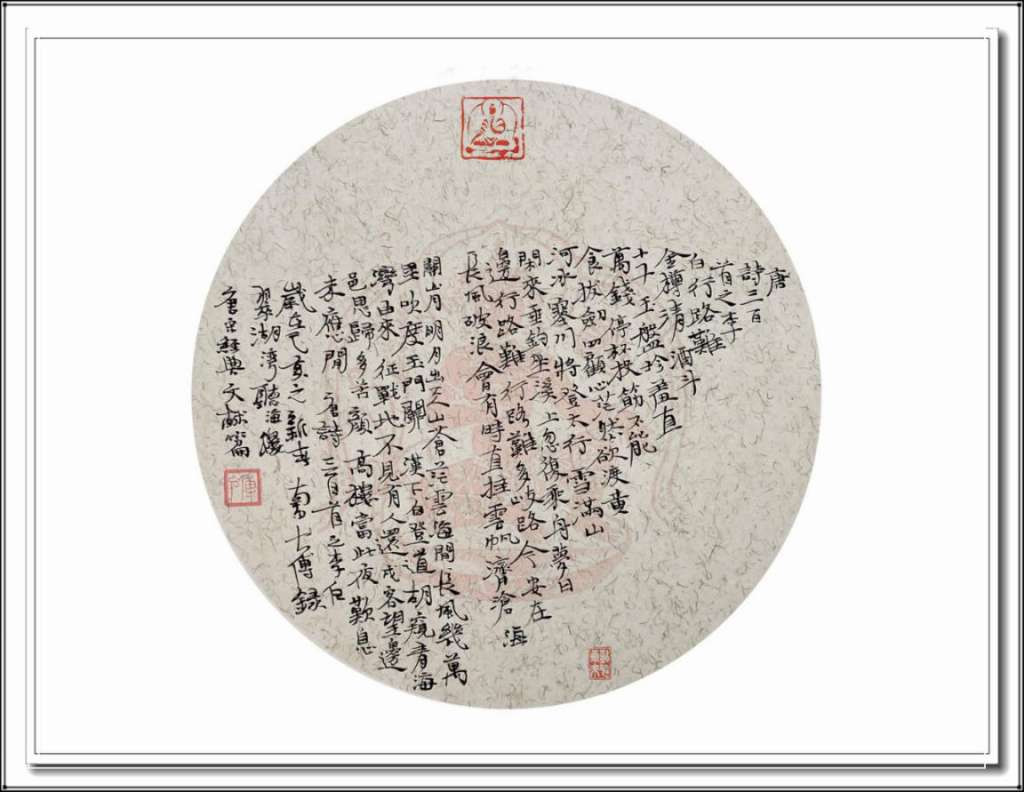 唐
詩三百
首之李
白行路難
金樽清酒斗
十千玉盤珍羞直
萬錢停杯投筋不能
食拔劍四顧心茫然欲渡黄
河冰塞川將登太行雪滿山
閑來垂釣坐溪上忽復乘舟夢日
邊行路難行路難多岐路今安在
長風破浪會有時直挂雲帆濟滄海
關山月明月出天山蒼茫雲海間長風幾萬
里吹度玉門關漢下白登道胡窺青海
灣由來征戰地不見有人還戍客望邊
邑思歸多苦顔高樓當此夜歎息
未應閒唐詩三百首之李白
歲在己亥之新春南士傅録
翠湖灣聽海樓
唐宋經典文獻篇